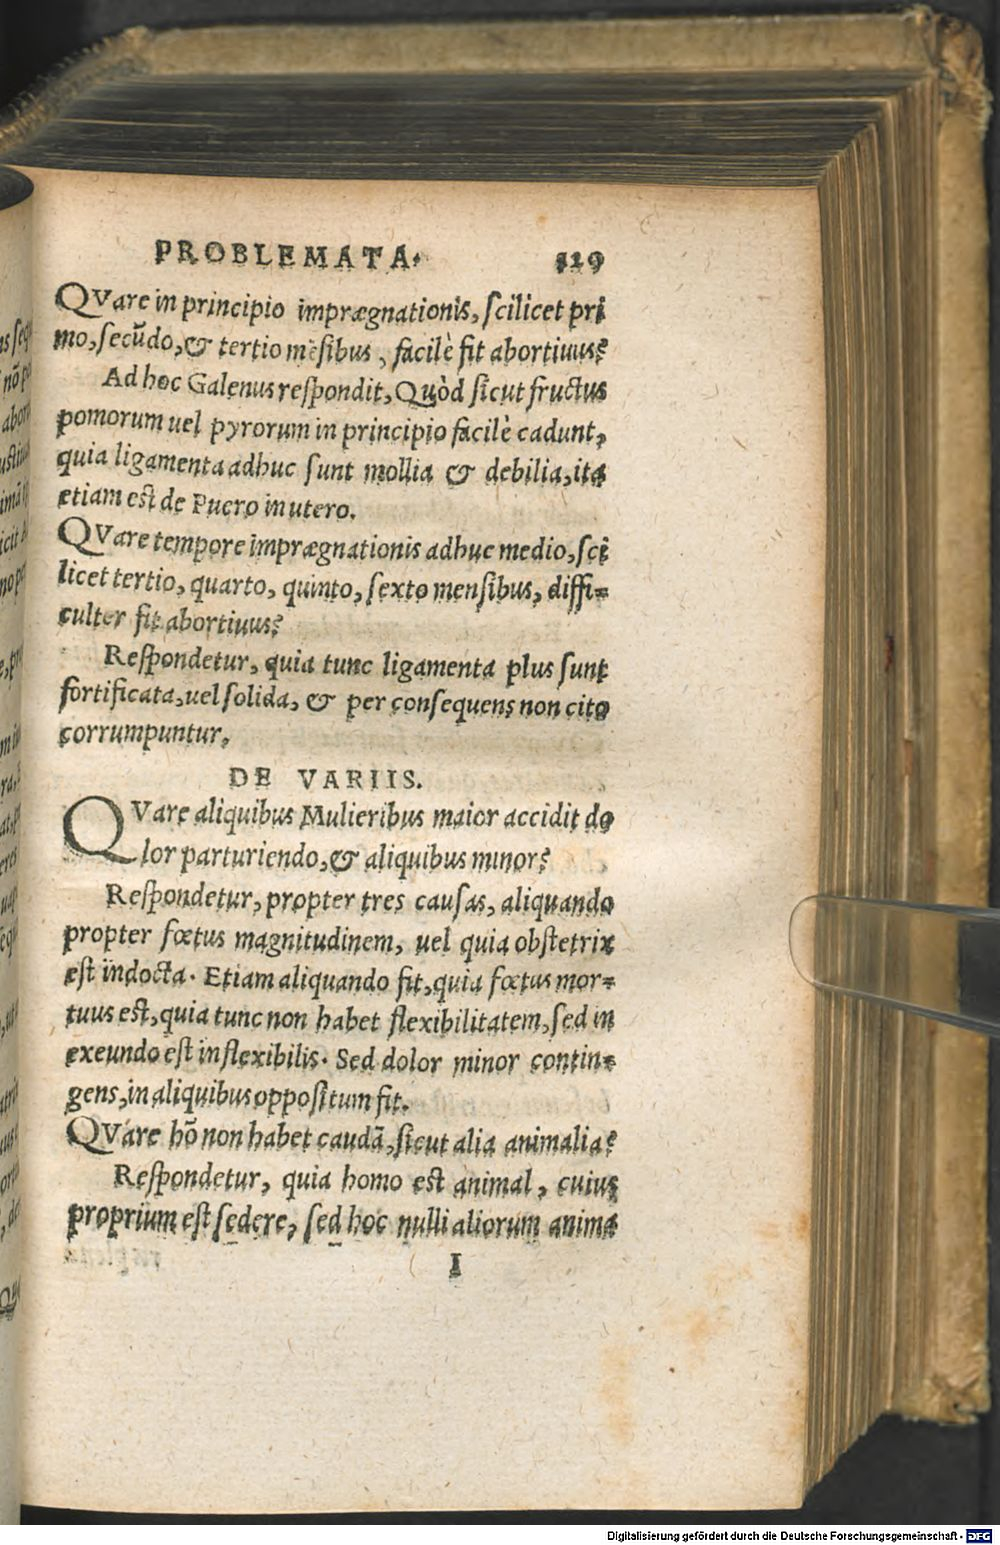 PROBLEMATA. 129
QVare in principio imprægnationis, scilicet pri
mo, secũdo, & tertio mēsibus, facilè fit abortiuus?
Ad hoc Galenus respondit, Quòd sicut fructus
pomorum uel pyrorum in principio facilè cadunt,
quia ligamenta adhuc sunt mollia & debilia, ita
etiam est de Puero in utero.
QVare tempore imprægnationis adhuc medio, sci
licet tertio, quarto, quinto, sexto mensibus, diffi-
culter fit abortiuus?
Respondetur, quia tunc ligamenta plus sunt
fortificata, uel solida, & per consequens non cito
corrumpuntur.
DE VARIIS.
QVare aliquibus Mulieribus maior accidit do
lor parturiendo, & aliquibus minor?
Respondetur, propter tres causas, aliquando
propter fœtus magnitudinem, uel quia obstetrix
est indocta. Etiam aliquando fit, quia fœtus mor-
tuus est, quia tunc non habet flexibilitatem, sed in
exeundo est inflexibilis. Sed dolor minor contin-
gens, in aliquibus oppositum fit.
QVare hõ non habet caudã, sicut alia animalia?
Respondetur, quia homo est animal, cuius
proprium est sedere, sed hoc nulli aliorum anima
I
Digitalisierung gefördert durch die Deutsche Forschungsgemeinschaft - DFG